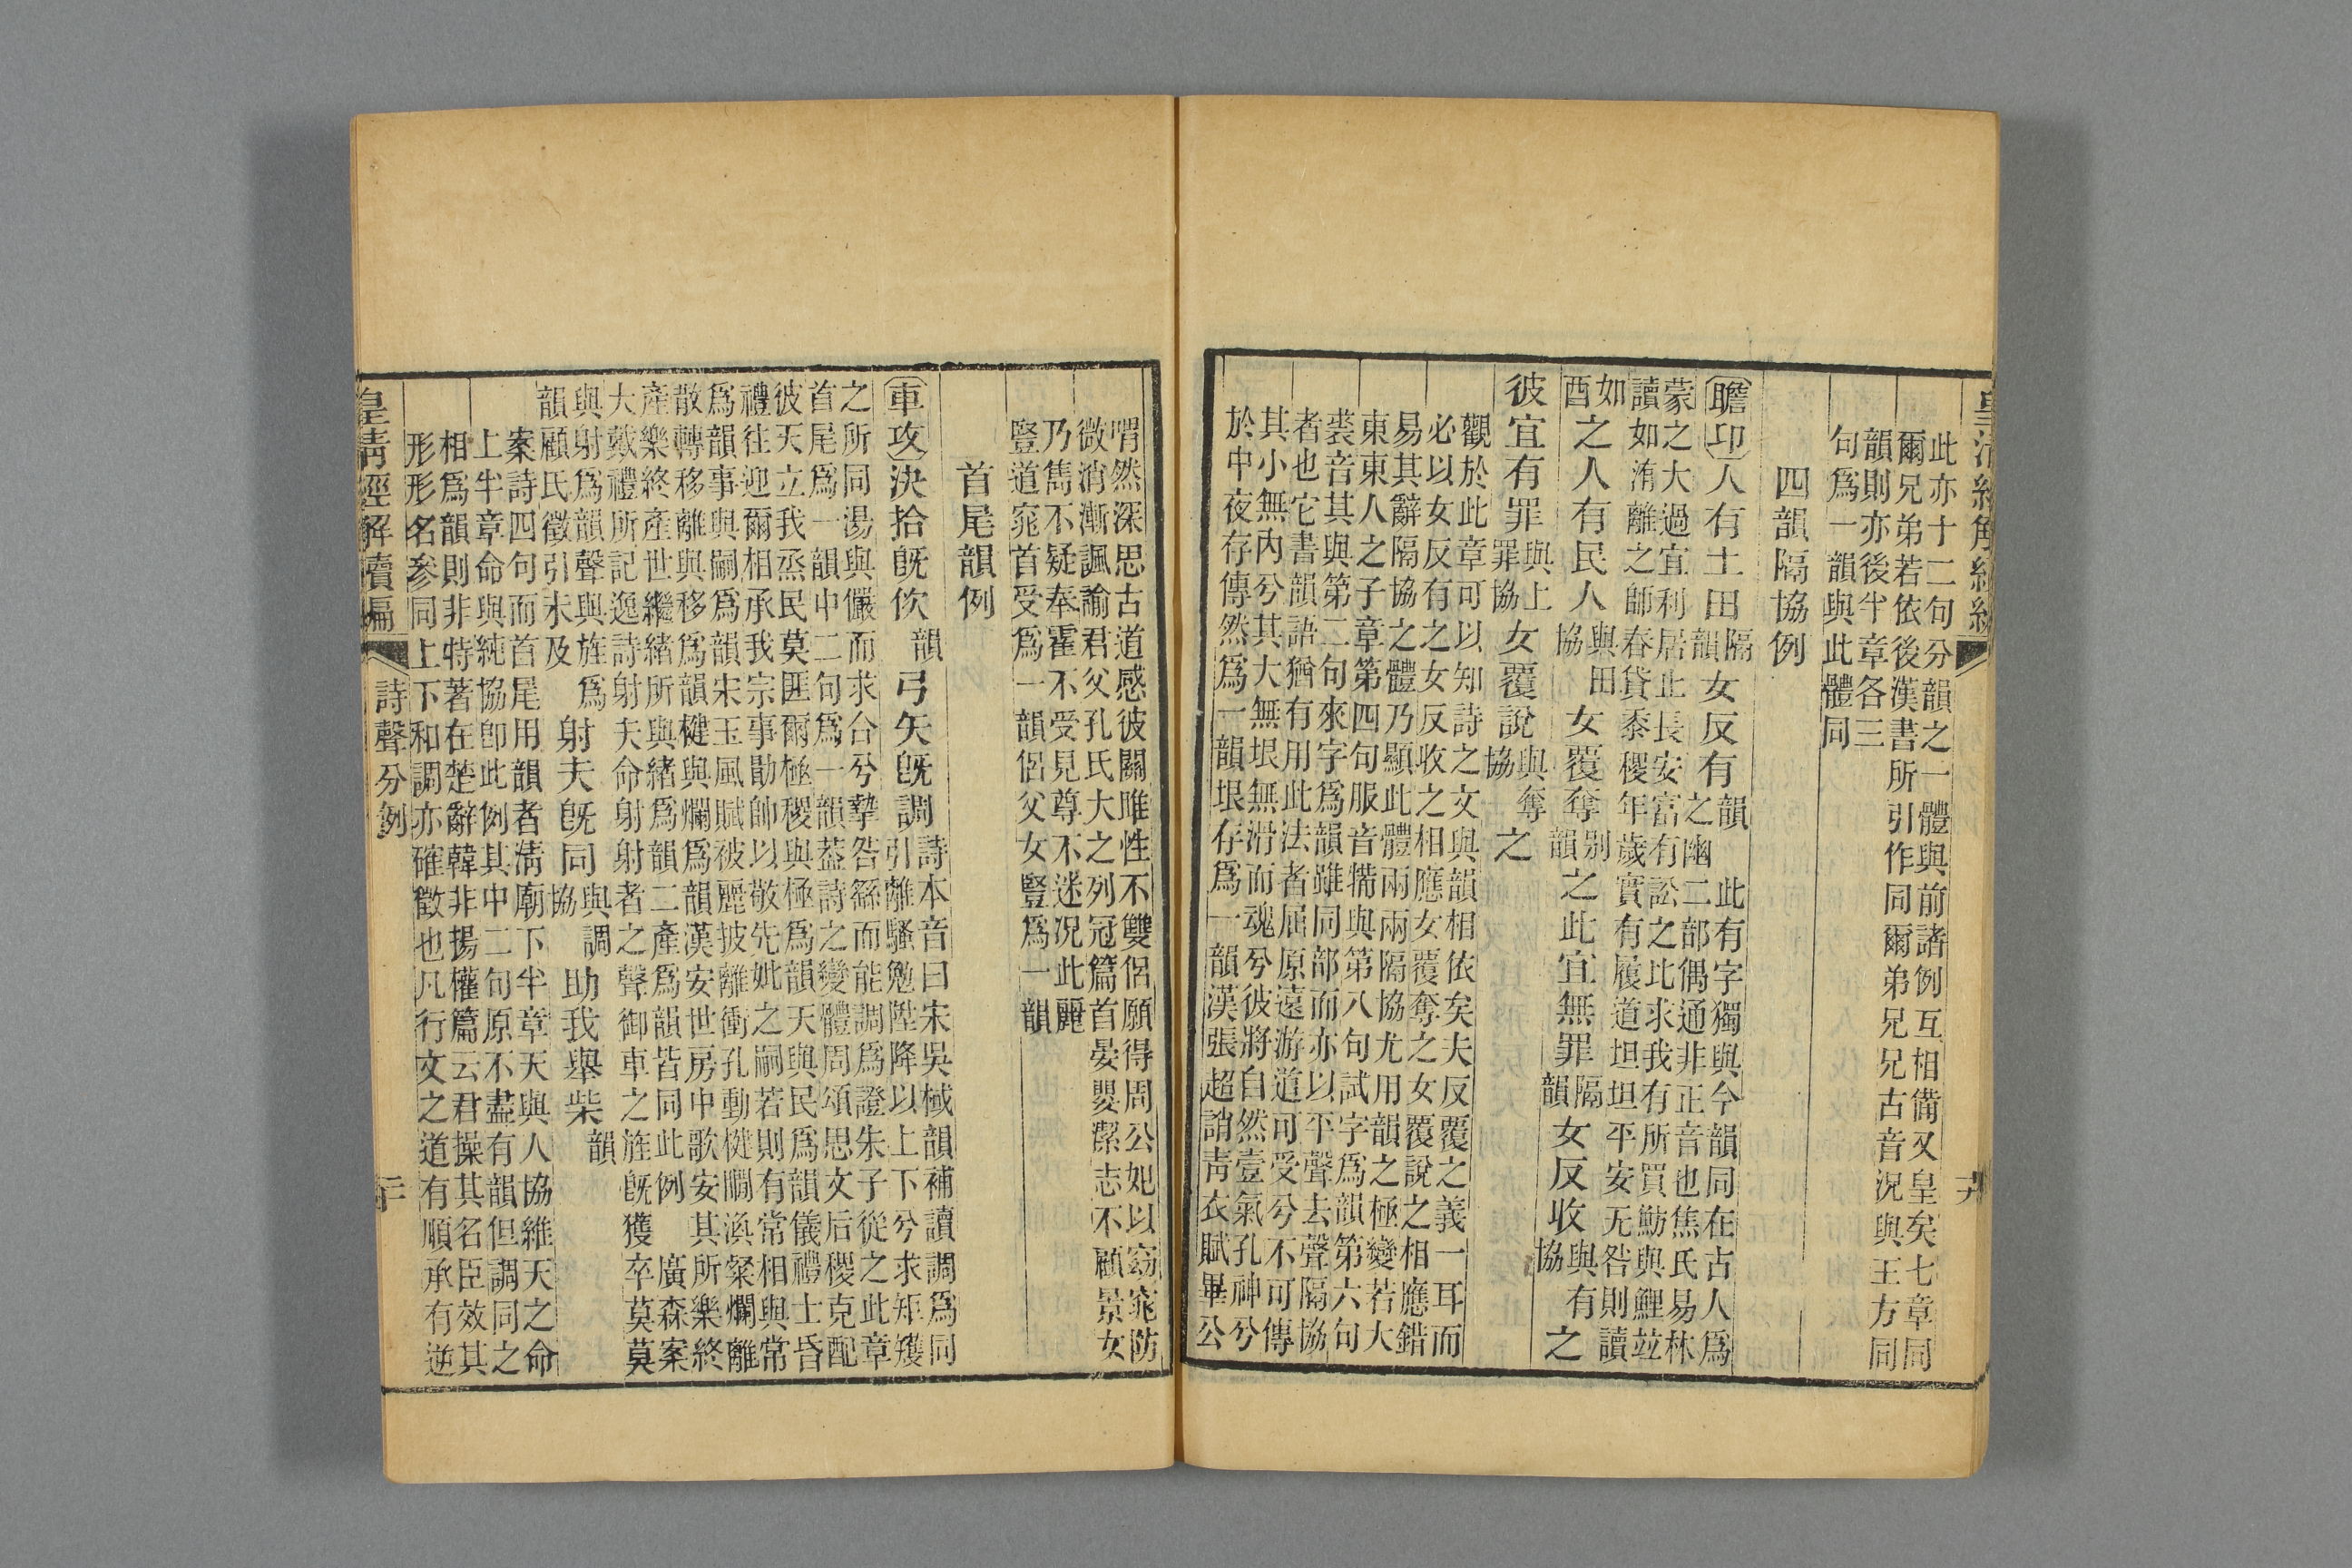 皇清經解續編
十九
此亦十二句分韻之一體與前諸例互相備又皇矣七章同
爾兄弟若依後漢書所引作同爾弟兄兄古音況與王方同
韻則亦後半章各三
句爲一韻與此體同
四韻隔協例
瞻卬人有土田隔韻女反有韻此有字獨與今韻同在古人爲
之幽二部偶通非正音也焦氏易林
蒙之大過宜利居止長安富有訟之比求我有所買魴與鯉竝
讀如洧離之師春貸黍稷年歲實有履道坦坦平安无咎則讀
如酉之人有民人與田協女覆奪別韻之此宜無罪隔韻女反收與有協之
彼宜有罪與上罪協女覆說與奪協之
觀於此章可以知詩之文與韻相依矣夫反覆之義一耳而
必以女反有之女反收之相應女覆奪之女覆說之相應錯
易其辭隔協之體乃顯此體兩兩隔協尤用韻之極變若大
東東人之子章第四句服音犕與第八句試字爲韻第六句
裘音其與第二句來字爲韻雖同部而亦以平聲去聲隔協
者也它書韻語猶有用此法者屈原遠游道可受兮不可傳
其小無內兮其大無垠無滑而魂兮彼將自然壹氣孔神兮
於中夜存傳然爲一韻垠存爲一韻漢張超誚靑衣賦畢公
喟然深思古道感彼關雎性不雙侶願得周公妃以窈窕防
微消漸諷諭君父孔氏大之列冠篇首晏嬰潔志不顧景女
乃雋不疑奉霍不受見尊不迷況此麗
豎道窕首受爲一韻侶父女豎爲一韻
首尾韻例
車攻決拾旣佽韻弓矢旣調詩本音曰宋吳棫韻補讀調爲同
引離騷勉陞降以上下兮求矩矱
之所同湯與儼而求合兮摯咎繇而能調爲證朱子從之此章
首尾爲一韻中二句爲一韻葢詩之變體周頌思文后稷克配
彼天立我烝民莫匪爾極稷與極爲韻天與民爲韻儀禮士昏
禮往迎爾相承我宗事勖帥以敬先妣之嗣若則有常相與常
爲韻事與嗣爲韻宋玉風賦被麗披離衝孔動楗眴渙粲爛離
散轉移離與移爲韻楗與爛爲韻漢安世房中歌安其所樂終
產樂終產世繼緒所與緒爲韻二產爲韻皆同此例廣森案
大戴禮所記逸詩射夫命射射者之聲御車之旌旣獲卒莫莫
與射爲韻聲與旌爲
韻顧氏徵引未及射夫旣同與調協助我舉柴韻
案詩四句而首尾用韻者淸廟下半章天與人協維天之命
上半章命與純協卽此例其中二句原不盡有韻但調同之
相爲韻則非特著在楚辭韓非揚權篇云君操其名臣效其
形形名參同上下和調亦確徵也凡行文之道有順承有逆
皇淸經解續編
詩聲分例
二十